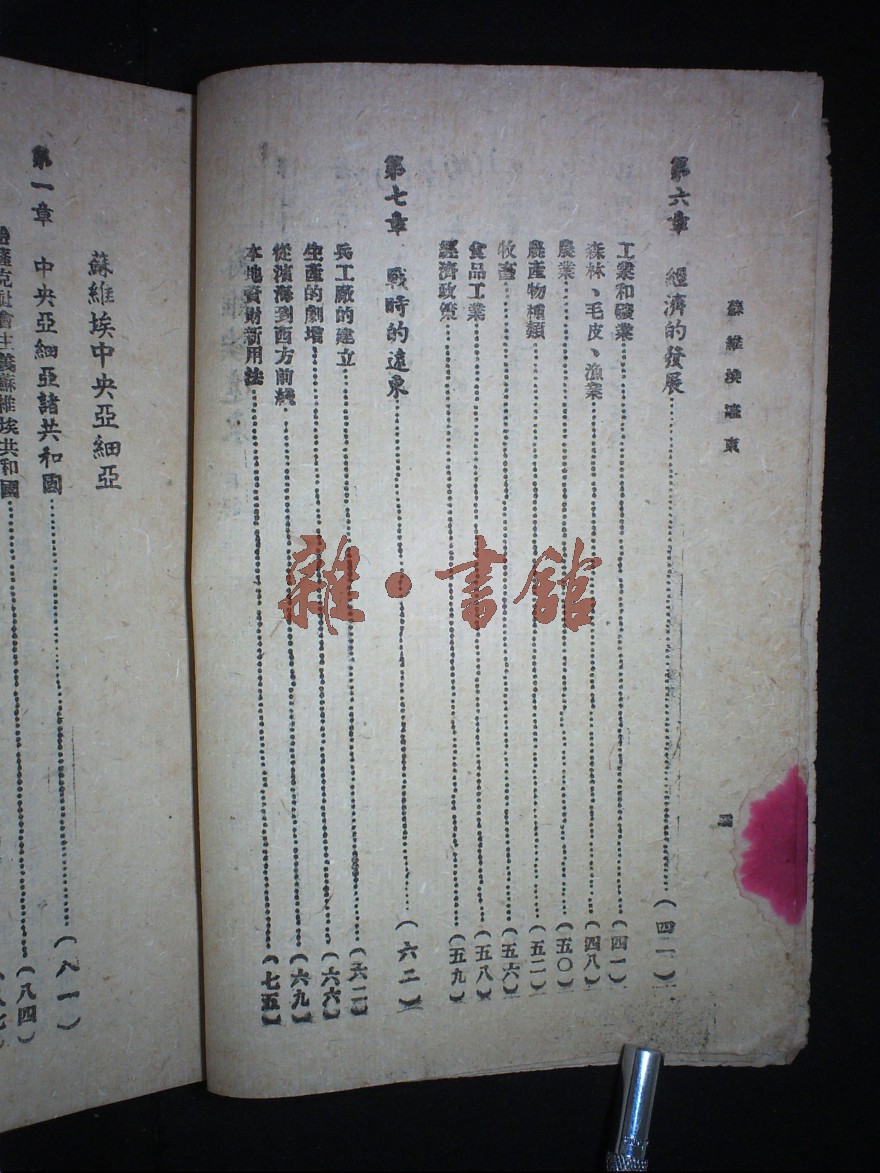 蘇維埃遠東
第六章 經濟的發展……(四一)
工業和礦業……(四一)
森林、毛皮、漁業……(四八)
農業……(五〇)
農產物種類……(五二)
牧畜……(五六)
食品工業……(五八)
經濟政策……(五九)
第七章 戰時的遠東……(六二)
兵工廠的建立……(六二)
生產的劇增……(六六)
從濱海到西方前綫……(六九)
本地資財新用法……(七五)
蘇維埃中央亞細亞
第一章 中央亞細亞諸共和國……(八一)
薩克社會主義蘇維埃共和國……(八四)
雜·書館